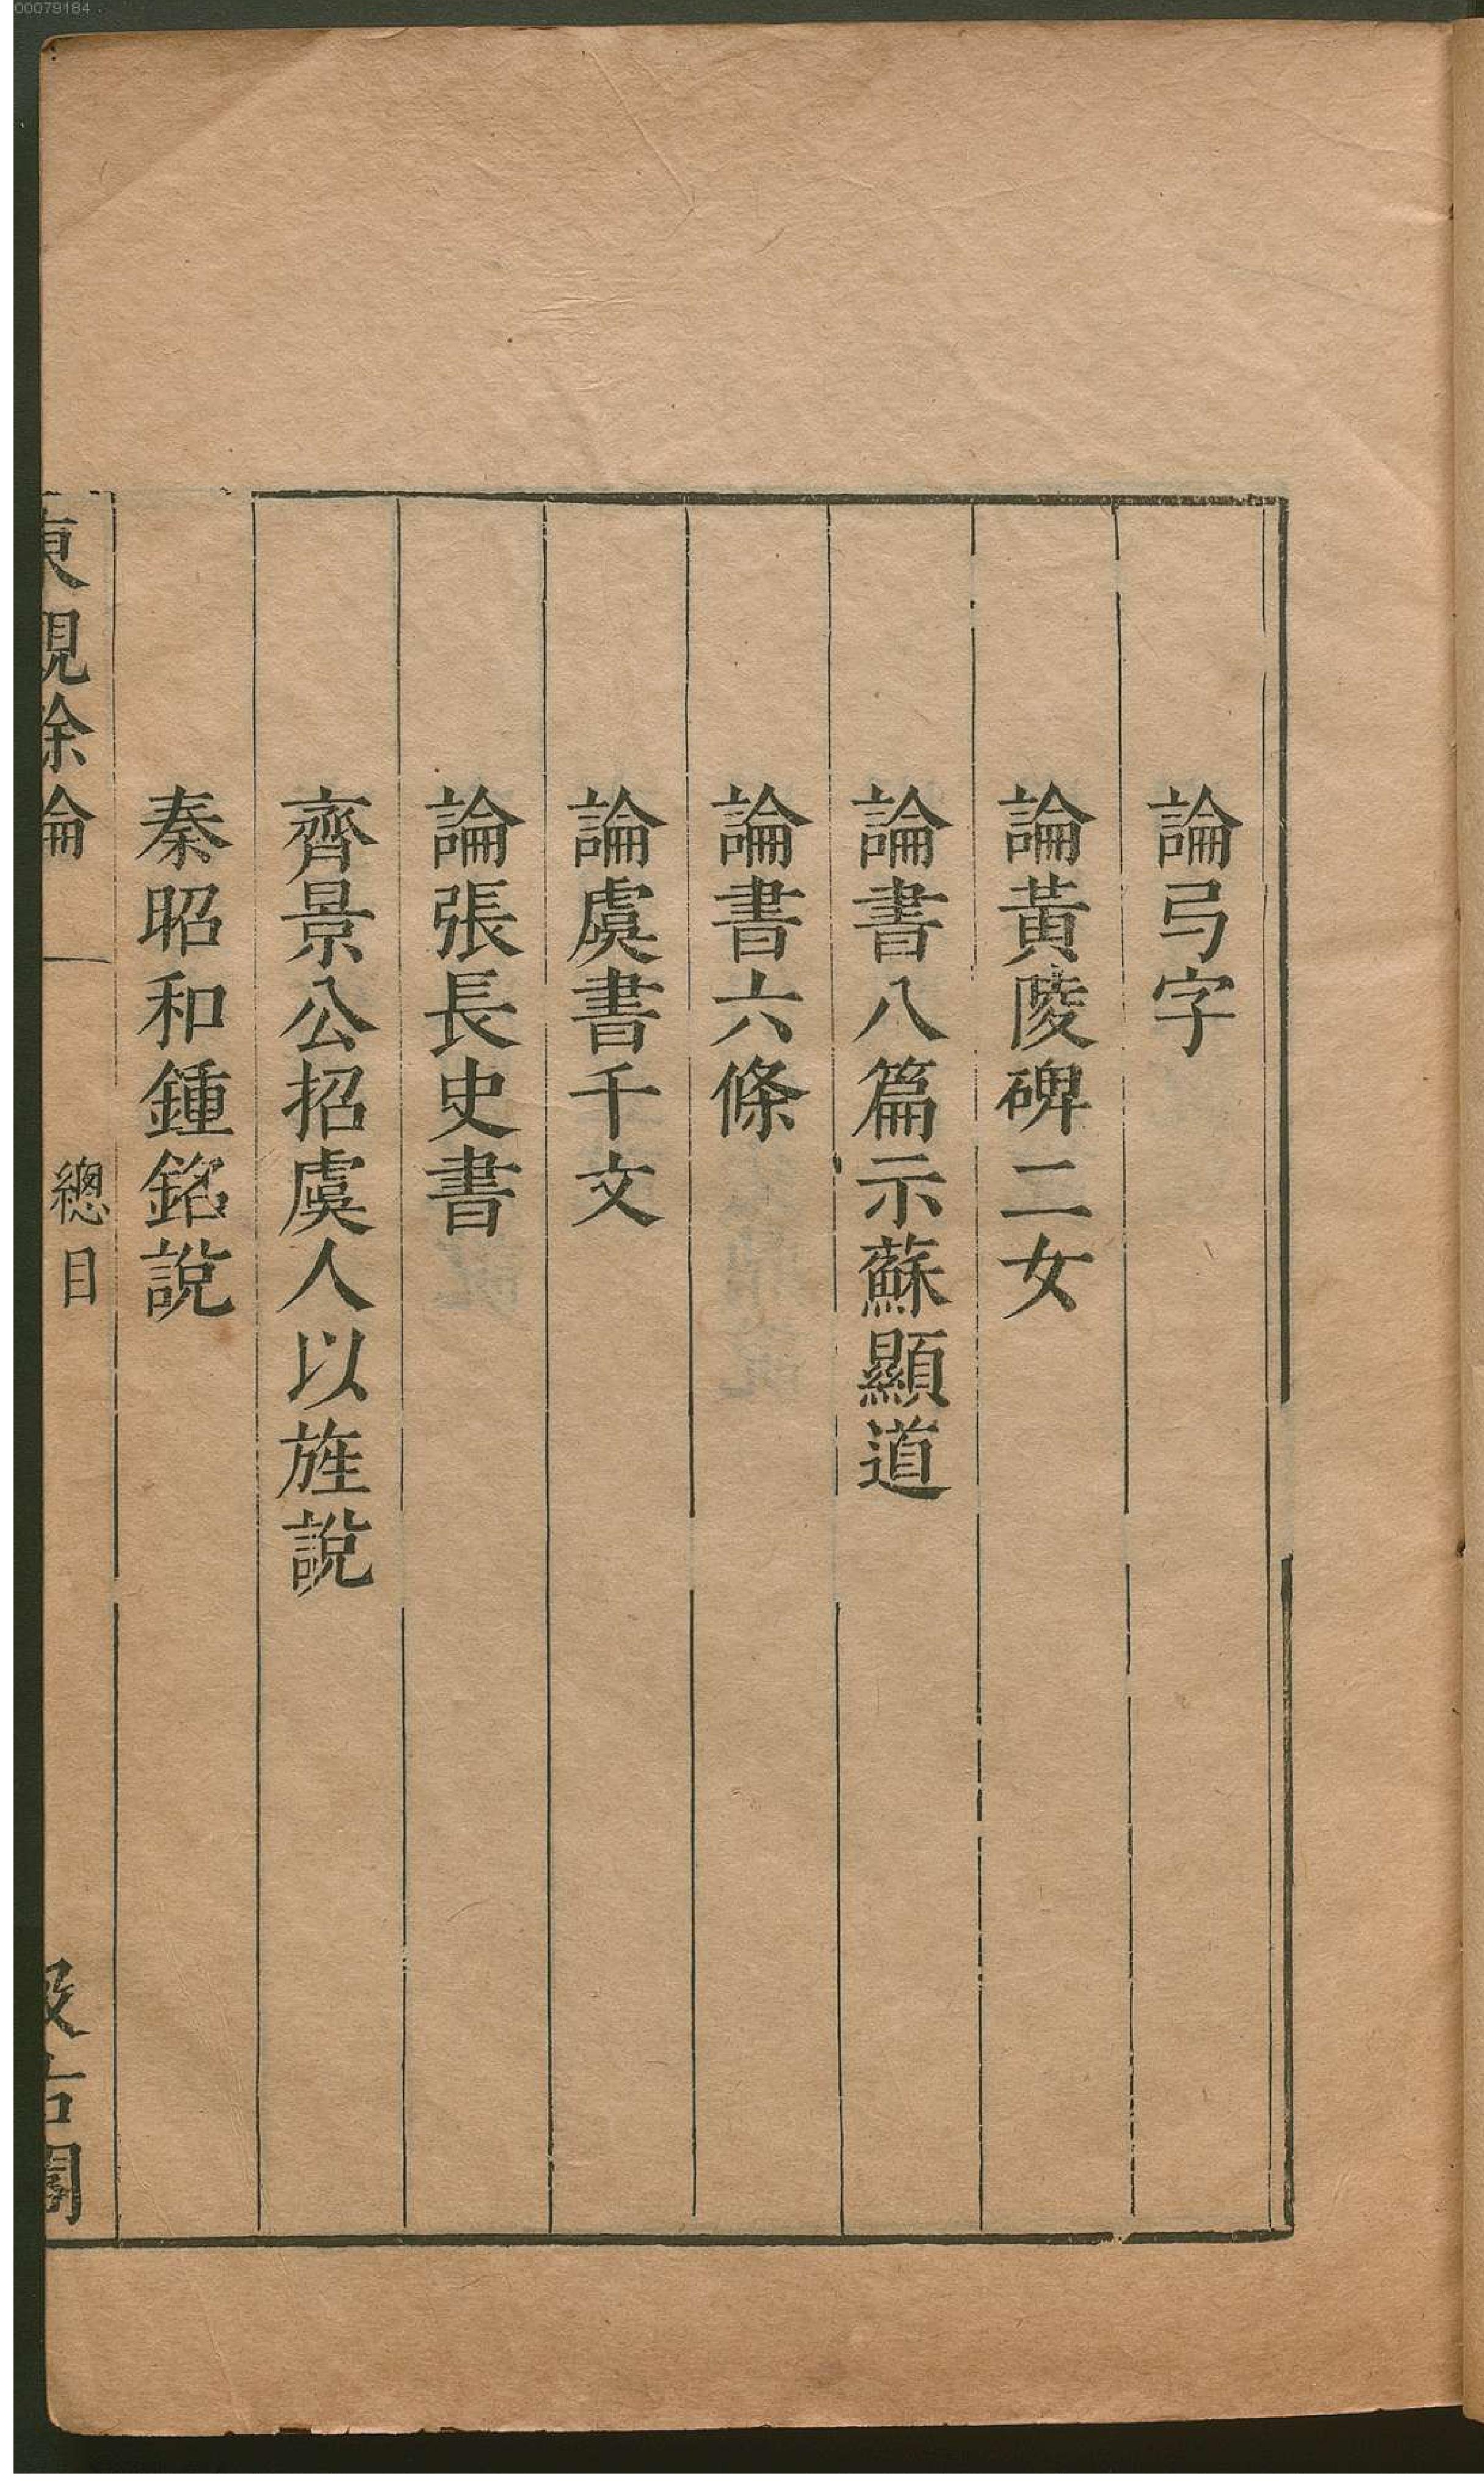 00079184
論弓字
論黃陵碑二女
論書八篇示蘇顯道
論書六條
論虞書千文
論張長史書
齊景公招虞人以旌說
秦昭和鍾銘說
東觀餘論
總目
汲古閣